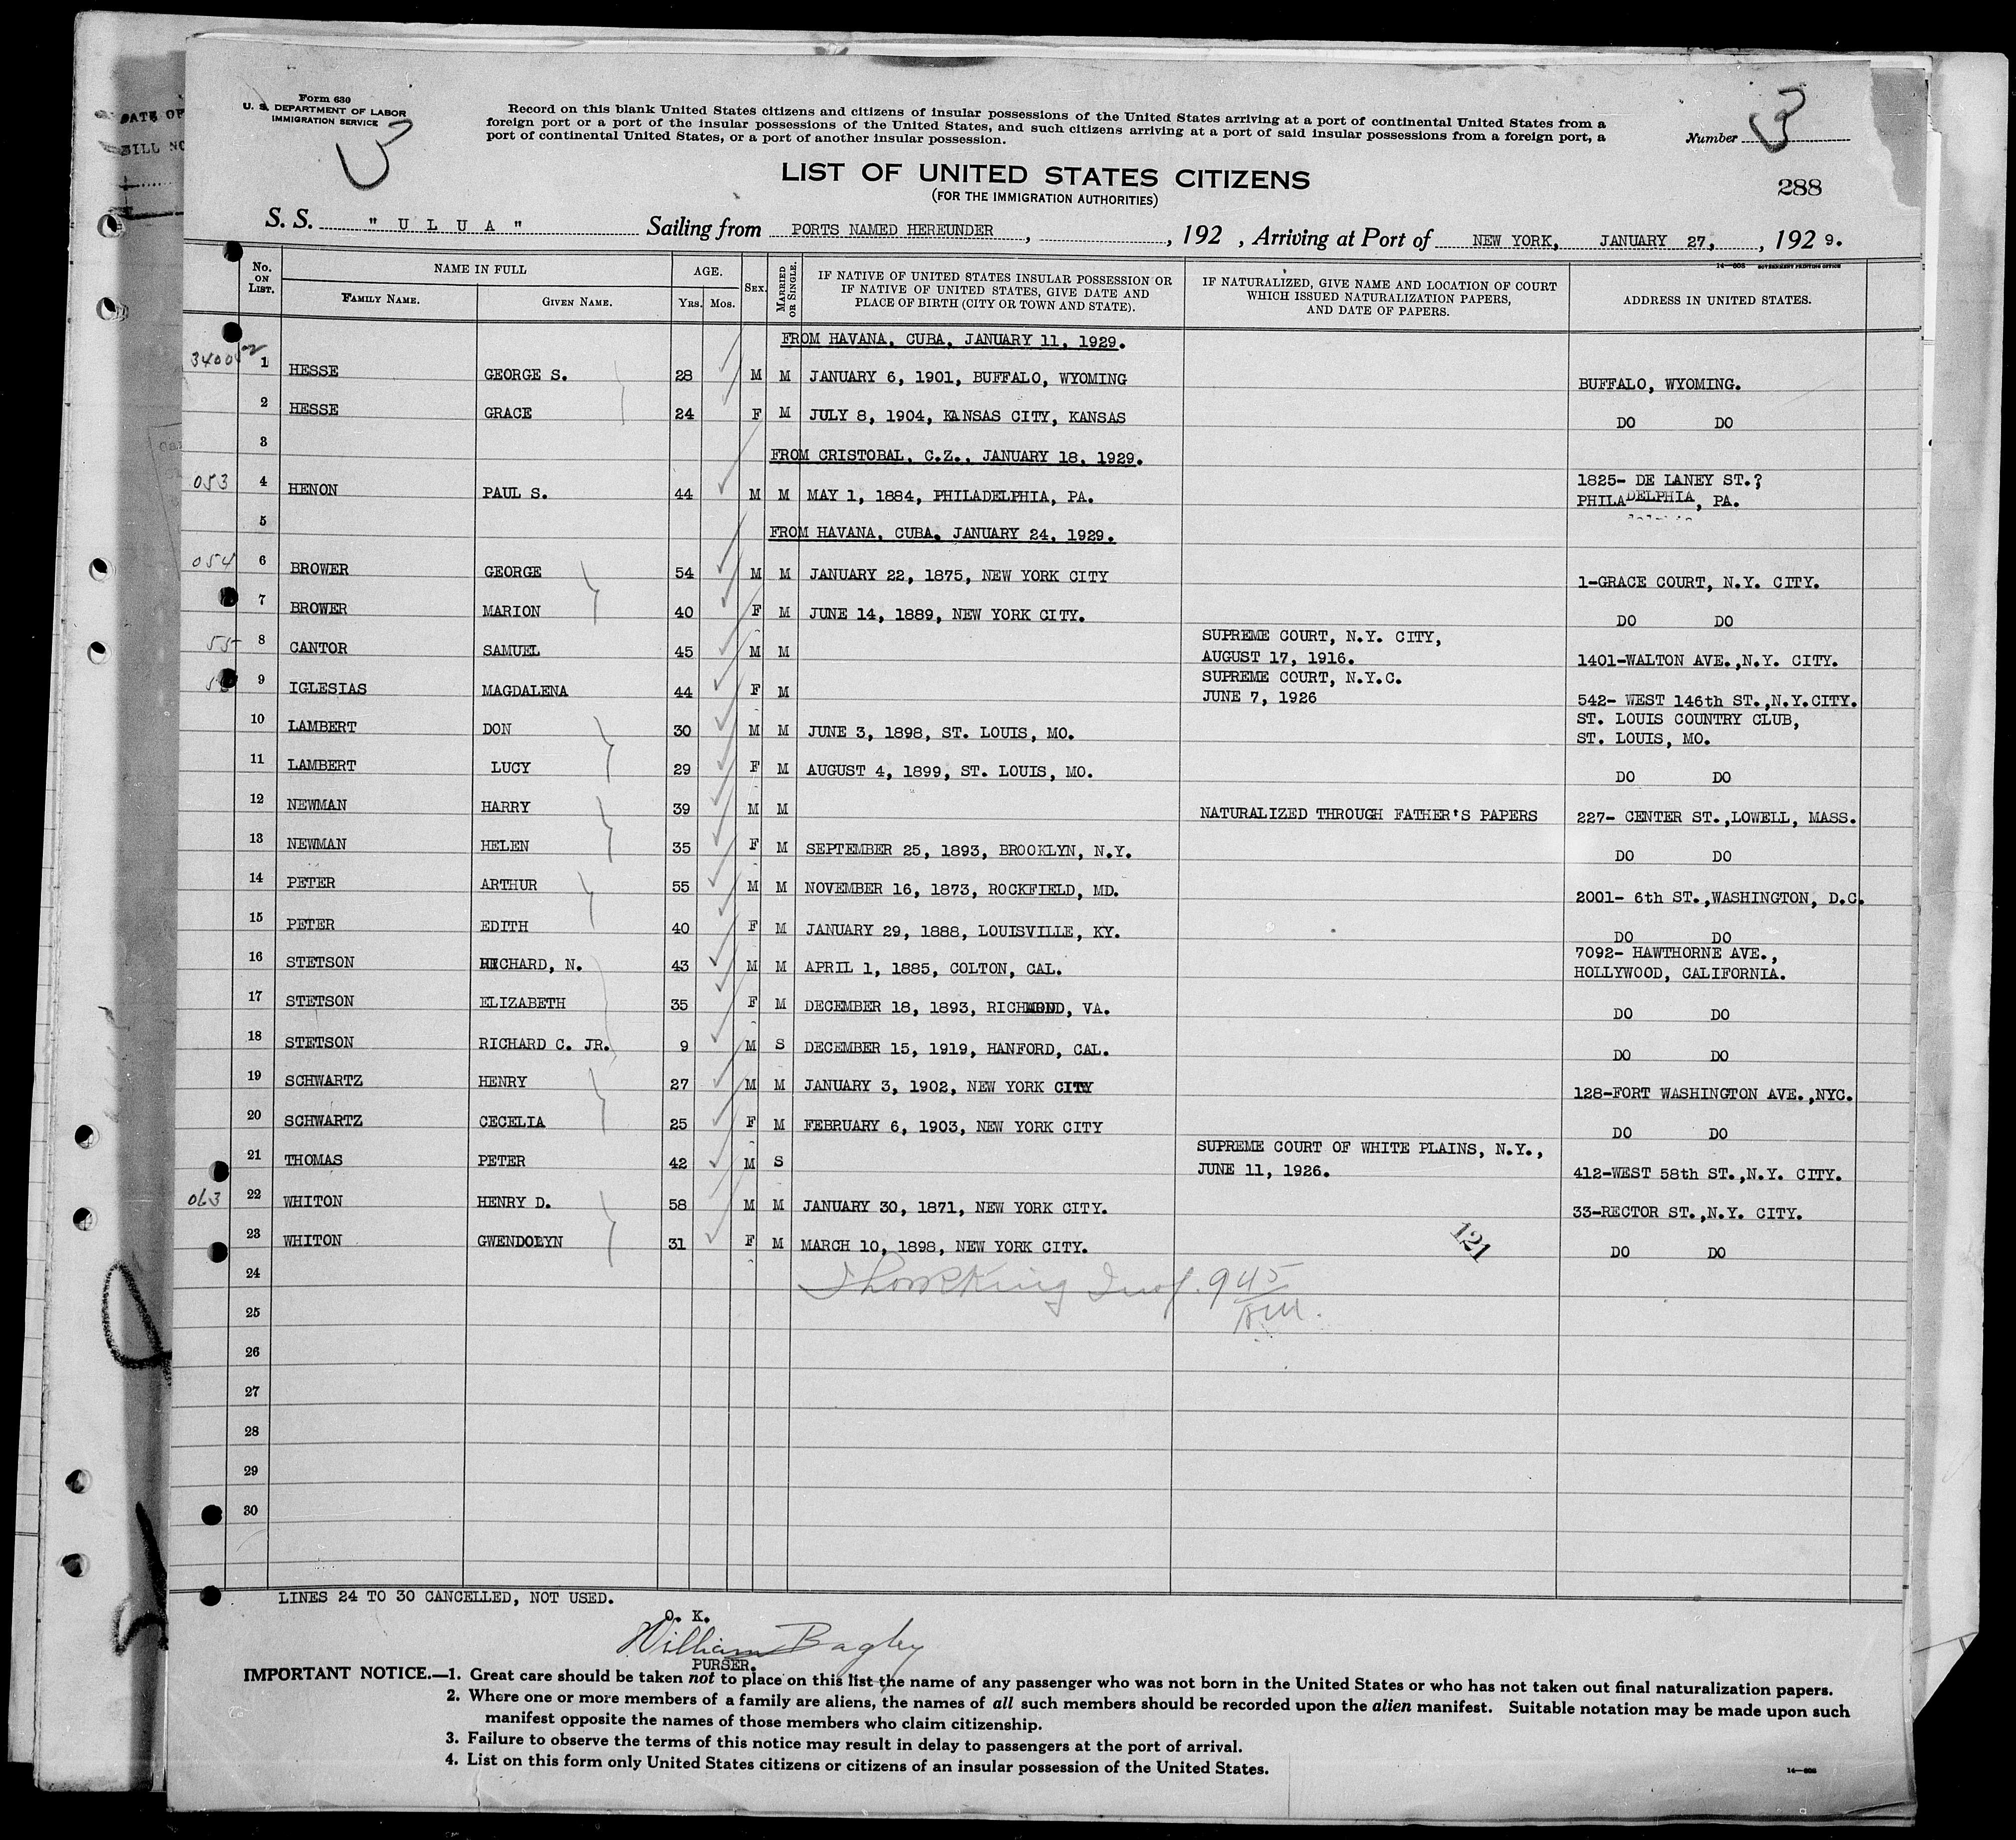 DATE OF
BILL NO
Form 630
U. S. DEPARTMENT OF LABOR
IMMIGRATION SERVICE
3
Record on this blank United States citizens and citizens of insular possessions of the United States arriving at a port of continental United States from a
foreign port or a port of the insular possessions of the United States, and such citizens arriving at a port of said insular possessions from a foreign port, a
port of continental United States, or a port of another insular possession.
Number 3
LIST OF UNITED STATES CITIZENS
(FOR THE IMMIGRATION AUTHORITIES)
288
S. S. " U L U A " Sailing from PORTS NAMED HEREUNDER , , 192 , Arriving at Port of NEW YORK, JANUARY 27, , 1929.
14—608 GOVERNMENT PRINTING OFFICE
No. ON LIST. NAME IN FULL FAMILY NAME. GIVEN NAME. AGE. YRS. MOS. SEX. MARRIED OR SINGLE. IF NATIVE OF UNITED STATES INSULAR POSSESSION OR IF NATIVE OF UNITED STATES, GIVE DATE AND PLACE OF BIRTH (CITY OR TOWN AND STATE). IF NATURALIZED, GIVE NAME AND LOCATION OF COURT WHICH ISSUED NATURALIZATION PAPERS, AND DATE OF PAPERS. ADDRESS IN UNITED STATES.
FROM HAVANA, CUBA, JANUARY 11, 1929.
3400 1 HESSE GEORGE S. 28 M M JANUARY 6, 1901, BUFFALO, WYOMING BUFFALO, WYOMING.
2 HESSE GRACE 24 F M JULY 8, 1904, KANSAS CITY, KANSAS DO DO
3 FROM CRISTOBAL, C.Z., JANUARY 18, 1929.
053 4 HENON PAUL S. 44 M M MAY 1, 1884, PHILADELPHIA, PA. 1825- DE LANEY ST.?
PHILADELPHIA, PA.
5 FROM HAVANA, CUBA, JANUARY 24, 1929.
054 6 BROWER GEORGE 54 M M JANUARY 22, 1875, NEW YORK CITY 1-GRACE COURT, N.Y. CITY.
7 BROWER MARION 40 F M JUNE 14, 1889, NEW YORK CITY. DO DO
55 8 CANTOR SAMUEL 45 M M SUPREME COURT, N.Y. CITY,
AUGUST 17, 1916. 1401-WALTON AVE.,N.Y. CITY.
9 IGLESIAS MAGDALENA 44 F M SUPREME COURT, N.Y.C.
JUNE 7, 1926 542- WEST 146th ST.,N.Y.CITY.
10 LAMBERT DON 30 M M JUNE 3, 1898, ST. LOUIS, MO. ST. LOUIS COUNTRY CLUB,
ST. LOUIS, MO.
11 LAMBERT LUCY 29 F M AUGUST 4, 1899, ST. LOUIS, MO. DO DO
12 NEWMAN HARRY 39 M M NATURALIZED THROUGH FATHER'S PAPERS 227- CENTER ST.,LOWELL, MASS.
13 NEWMAN HELEN 35 F M SEPTEMBER 25, 1893, BROOKLYN, N.Y. DO DO
14 PETER ARTHUR 55 M M NOVEMBER 16, 1873, ROCKFIELD, MD. 2001- 6th ST.,WASHINGTON, D.C.
15 PETER EDITH 40 F M JANUARY 29, 1888, LOUISVILLE, KY. DO DO
16 STETSON RICHARD, N. 43 M M APRIL 1, 1885, COLTON, CAL. 7092- HAWTHORNE AVE.,
HOLLYWOOD, CALIFORNIA.
17 STETSON ELIZABETH 35 F M DECEMBER 18, 1893, RICHMOND, VA. DO DO
18 STETSON RICHARD C. JR. 9 M S DECEMBER 15, 1919, HANFORD, CAL. DO DO
19 SCHWARTZ HENRY 27 M M JANUARY 3, 1902, NEW YORK CITY 128-FORT WASHINGTON AVE.,NYC.
20 SCHWARTZ CECELIA 25 F M FEBRUARY 6, 1903, NEW YORK CITY DO DO
21 THOMAS PETER 42 M S SUPREME COURT OF WHITE PLAINS, N.Y.,
JUNE 11, 1926. 412-WEST 58th ST.,N.Y. CITY.
063 22 WHITON HENRY D. 58 M M JANUARY 30, 1871, NEW YORK CITY. 33-RECTOR ST.,N.Y. CITY.
23 WHITON GWENDOLYN 31 F M MARCH 10, 1898, NEW YORK CITY. 121 DO DO
24 Insp. 945 AM.
25
26
27
28
29
30
LINES 24 TO 30 CANCELLED, NOT USED.
O. K.
William Bagley
PURSER.
IMPORTANT NOTICE.—1. Great care should be taken not to place on this list the name of any passenger who was not born in the United States or who has not taken out final naturalization papers.
2. Where one or more members of a family are aliens, the names of all such members should be recorded upon the alien manifest. Suitable notation may be made upon such
manifest opposite the names of those members who claim citizenship.
3. Failure to observe the terms of this notice may result in delay to passengers at the port of arrival.
4. List on this form only United States citizens or citizens of an insular possession of the United States.
14—608